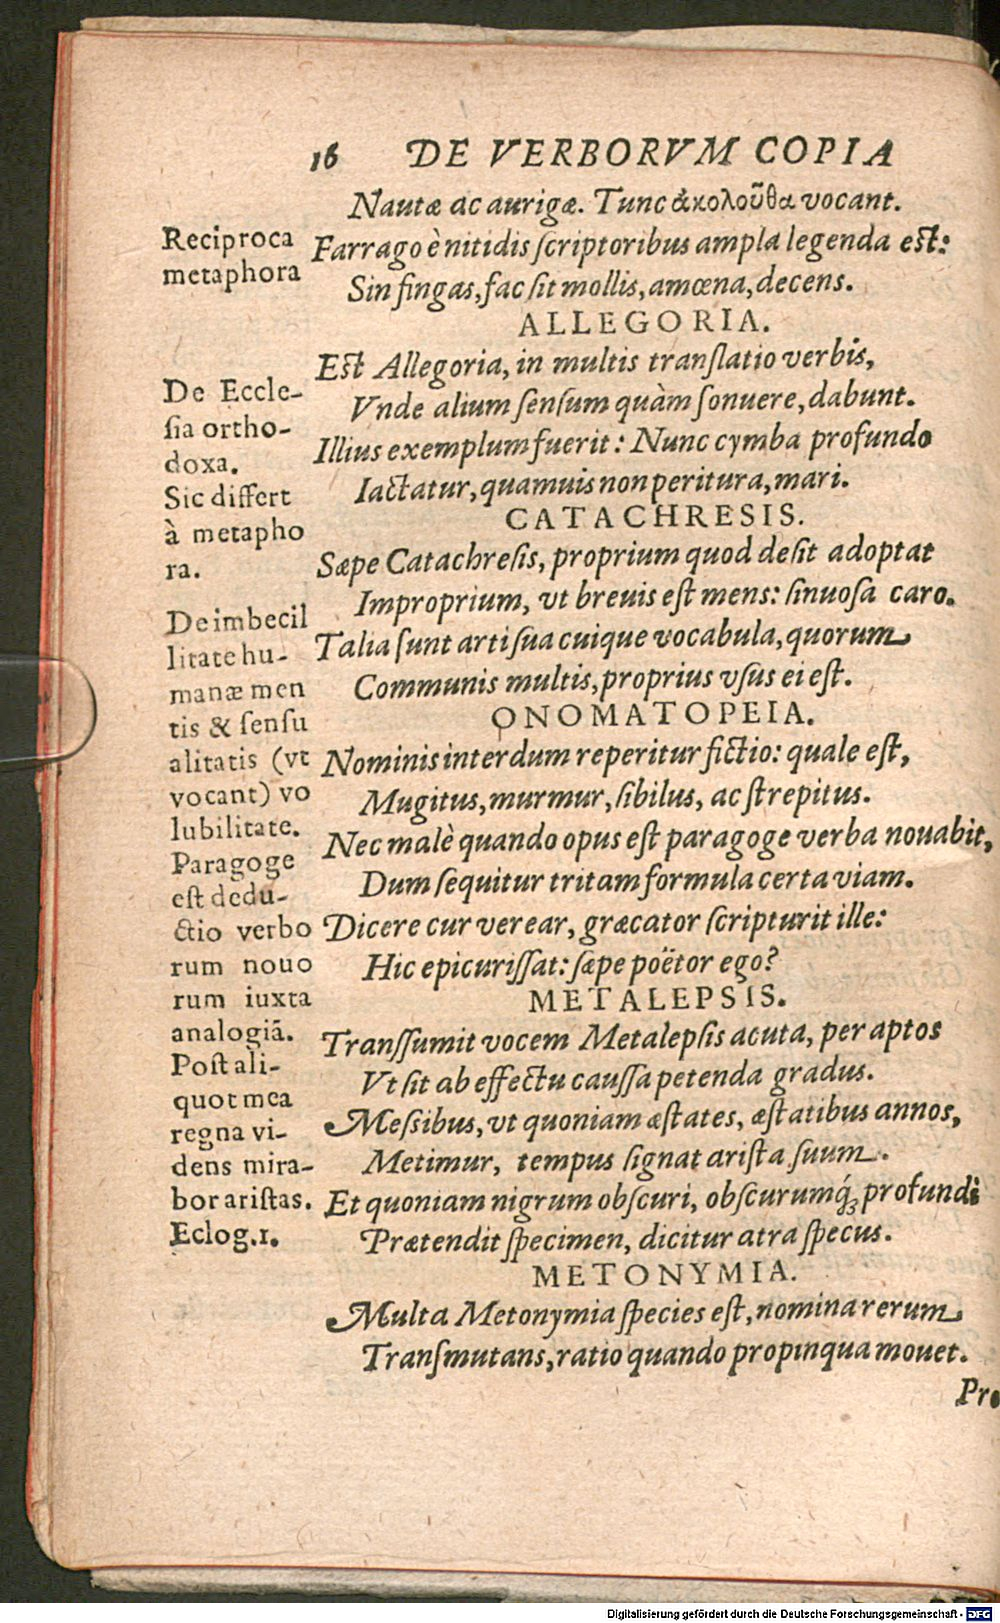 16 DE VERBORVM COPIA
Nautæ ac aurigæ. Tunc ἀκολοῦθα vocant.
Reciproca
metaphora
Farrago è nitidis ſcriptoribus ampla legenda eſt:
Sin fingas, fac ſit mollis, amœna, decens.
ALLEGORIA.
Eſt Allegoria, in multis tranſlatio verbis,
Vnde alium ſenſum quàm ſonuere, dabunt.
Illius exemplum fuerit: Nunc cymba profundo
Iactatur, quamuis non peritura, mari.
De Eccle-
ſia ortho-
doxa.
Sic differt
à metapho
ra.
CATACHRESIS.
Sæpe Catachreſis, proprium quod deſit adoptat
Improprium, vt breuis eſt mens: ſinuoſa caro.
Talia ſunt arti ſua cuique vocabula, quorum
Communis multis, proprius vſus ei eſt.
De imbecil
litate hu-
manæ men
tis & ſenſu
alitatis (vt
vocant) vo
lubilitate.
ONOMATOPEIA.
Nominis interdum reperitur fictio: quale eſt,
Mugitus, murmur, ſibilus, ac ſtrepitus.
Nec malè quando opus eſt paragoge verba nouabit,
Dum ſequitur tritam formula certa viam.
Dicere cur verear, græcator ſcripturit ille:
Hic epicuriſſat: ſæpe poëtor ego?
Paragoge
eſt dedu-
ctio verbo
rum nouo
rum iuxta
analogiā.
METALEPSIS.
Tranſſumit vocem Metalepſis acuta, per aptos
Vt ſit ab effectu cauſſa petenda gradus.
Meſsibus, vt quoniam æſtates, æſtatibus annos,
Metimur, tempus ſignat ariſta ſuum.
Et quoniam nigrum obſcuri, obſcurumq́; profundi
Prætendit ſpecimen, dicitur atra ſpecus.
Poſt ali-
quot mea
regna vi-
dens mira-
bor ariſtas.
Eclog.1.
METONYMIA.
Multa Metonymia ſpecies eſt, nomina rerum
Tranſmutans, ratio quando propinqua mouet.
Pro
Digitalisierung gefördert durch die Deutsche Forschungsgemeinschaft - DFG